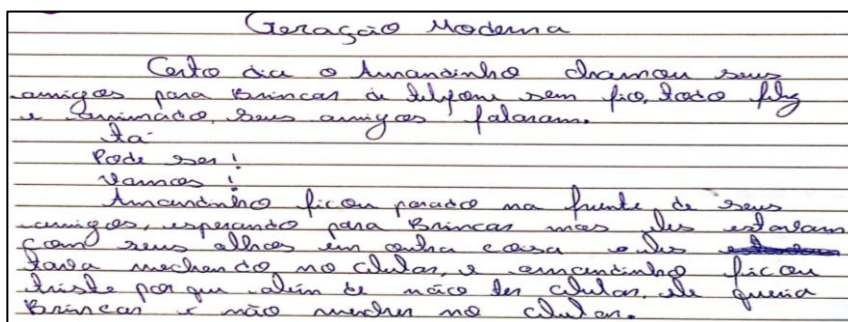 Geração Moderna
Certo dia o Amandinho chamou seus
amigos para Brincar de telefone sem fio, todo feliz
e animado, seus amigos falaram.
Ta
Pode ser!
Vamos!
Amandinho ficou parado na frente de seus
amigos, esperando para Brincar mas eles estavam
com seus olhos em outra coisa eles
tava mechendo no celular, e amandinho ficou
triste por que além de não ter celular, ele queria
Brincar e não mecher no celular.